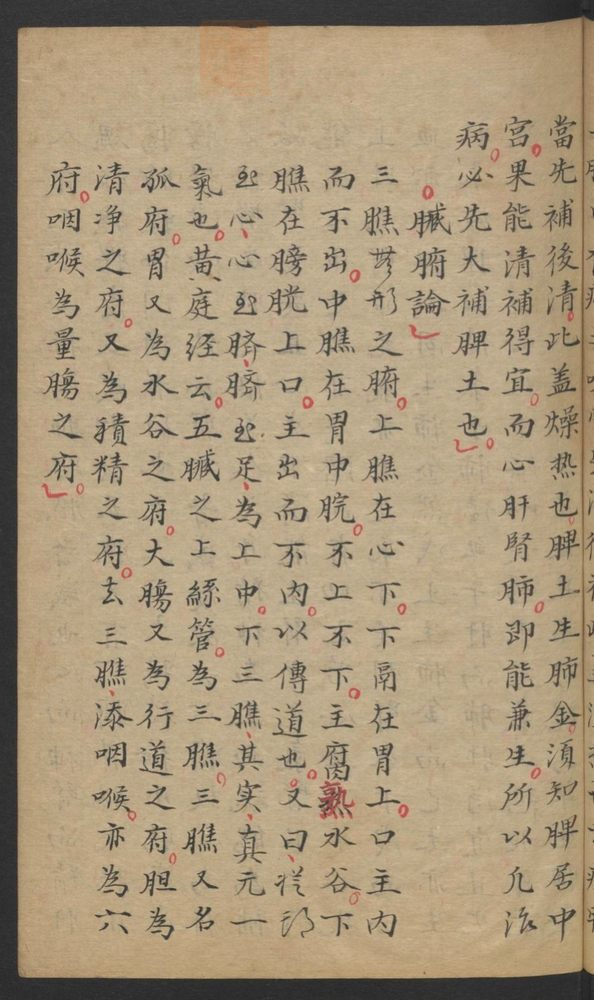 當先補後清。此盖燥热也。脾土生肺金。須知脾居中
宫。果能清補得宜。而心肝腎肺。即能兼生。所以凢治
病。必先大補脾土也。
。臓腑論
三膲無形之腑。上膲在心下。下鬲在胃上。口主内
而不出。中膲在胃中脘。不上不下。主腐熟水谷。下
膲在膀胱上口。主出而不内。以傳道也。又曰、從頭
至心、心至臍、臍至足、為上中。下三膲、其实、真元一
氣也。黄庭经云。五臓之上繇管。為三膲。三膲又名
孤府。胃又為水谷之府。大膓又為行道之府。胆為
清净之府。又為積精之府。去三膲、添咽喉。亦為六
府。咽喉為量膓之府。